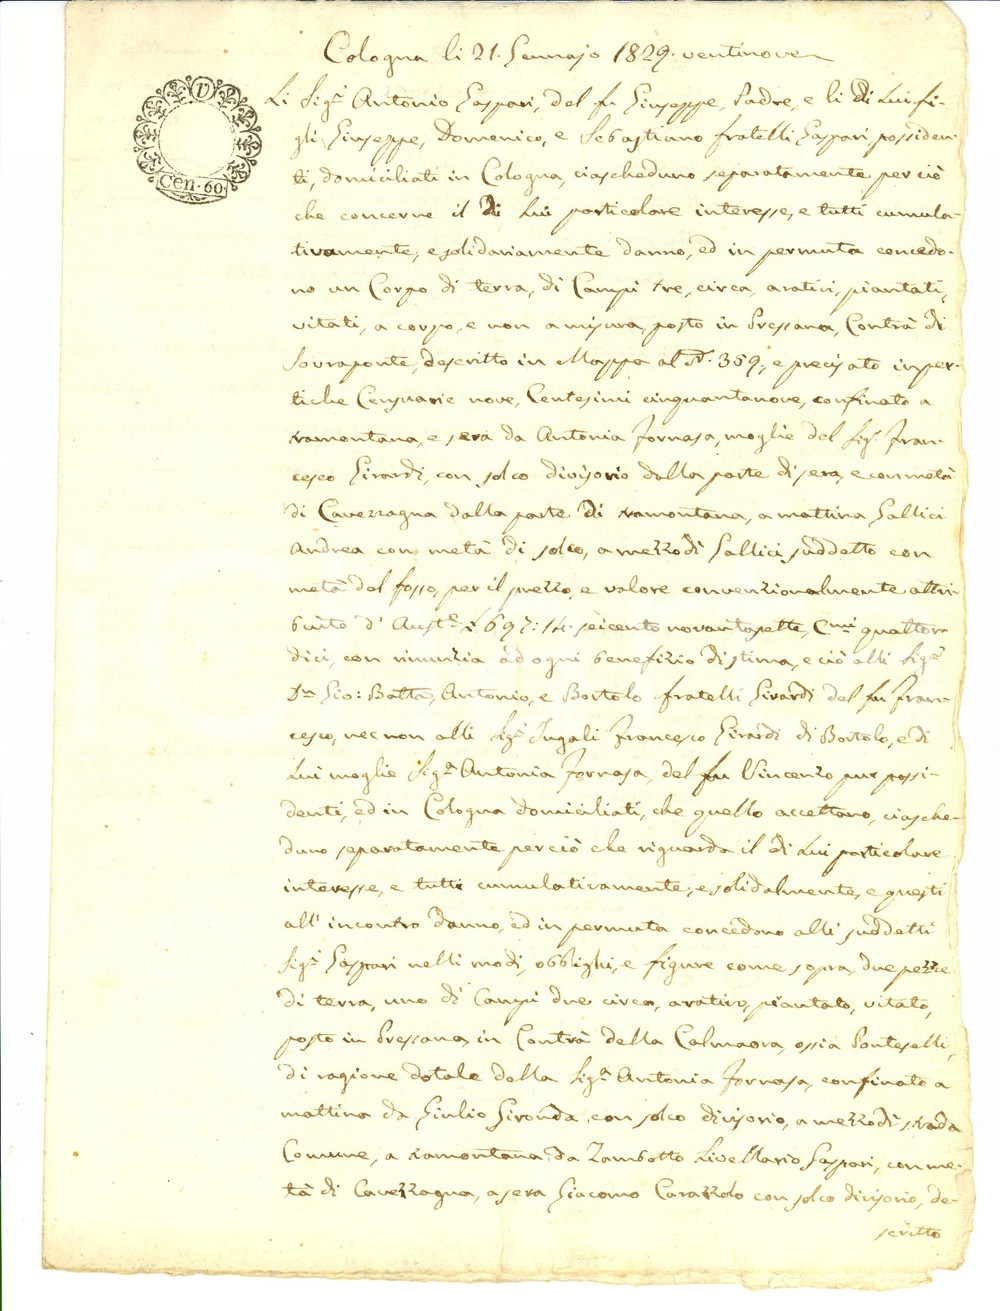 Cologna li 21. Gennajo 1829. ventinove
V
Cen. 60
Li Sig.ri Antonio Gaspari, del fu Giuseppe, Padre, e li di Lui fi-
gli Giuseppe, Domenico, e Sebastiano fratelli Gaspari possiden-
ti, domiciliati in Cologna, ciascheduno separatamente per ciò
che concerne il di Lui particolare interesse, e tutti cumula-
tivamente, e solidariamente danno, ed in permuta concedo-
no un Corpo di terra, di Campi tre, circa, arativi, piantati,
vitati, a corpo, e non a misura, posto in Pressana, Contrà di
Sovraponte, descritto in Mappa al N. 359, e precisato in per-
tiche Censuarie nove, Centesimi cinquantanove, confinato a
tramontana, e sera da Antonia Fornasa, moglie del Sig.r Fran-
cesco Girardi, con solco divisorio dalla parte di sera, e con metà
di Cavezzagna dalla parte di tramontana, a mattina Gallici
Andrea con metà di solco, a mezzodì Gallici suddetto con
metà del fosso, per il prezzo, e valore convenzionalmente attri-
buito d' Aust.e £ 697:14. seicento novantasette, C.mi quattor-
dici, con rinunzia ad ogni benefizio di stima, e ciò alli Sig.ri
D.n Gio: Batta, Antonio, e Bortolo fratelli Girardi del fu Fran-
cesco, nec non alli Sig.ri Jugali Francesco Girardi di Bortolo, e di
Lui moglie Sig.a Antonia Fornasa, del fu Vincenzo pur possi-
denti, ed in Cologna domiciliati, che quello accettano, ciasche-
duno separatamente per ciò che riguarda il di Lui particolare
interesse, e tutti cumulativamente, e solidalmente, e questi
all' incontro danno, ed in permuta concedono alli suddetti
Sig.ri Gaspari nelli modi, obblighi, e figure come sopra, due pezze
di terra, uno di Campi due circa, arativo, piantato, vitato,
posto in Pressana, in Contrà della Calmaora, ossia Ponteselli,
di ragione dotale della Sig.a Antonia Fornasa, confinato a
mattina da Giulio Gironda con solco divisorio, a mezzodì strada
Comune, a tramontana da Zambotto Livellario Gaspari, con me-
tà di Cavezzagna, a sera Giacomo Carazzolo con solco divisorio, de-
scritto